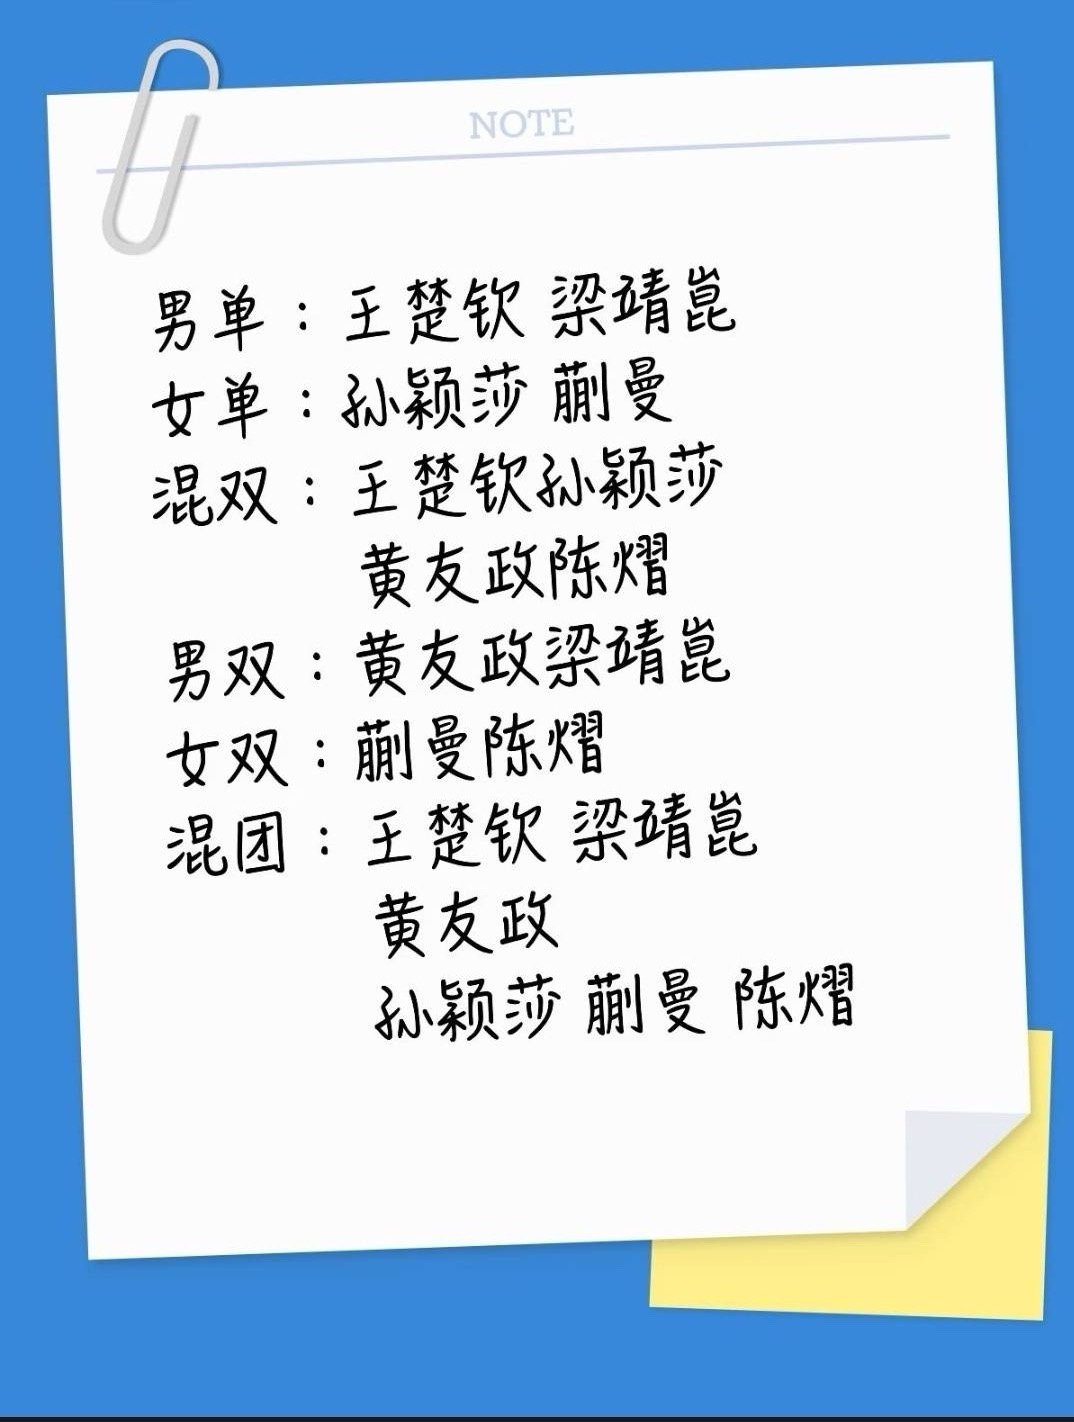 NOTE
男单：王楚钦 梁靖崑
女单：孙颖莎 蒯曼
混双：王楚钦孙颖莎
黄友政陈熠
男双：黄友政梁靖崑
女双：蒯曼陈熠
混团：王楚钦 梁靖崑
黄友政
孙颖莎 蒯曼 陈熠